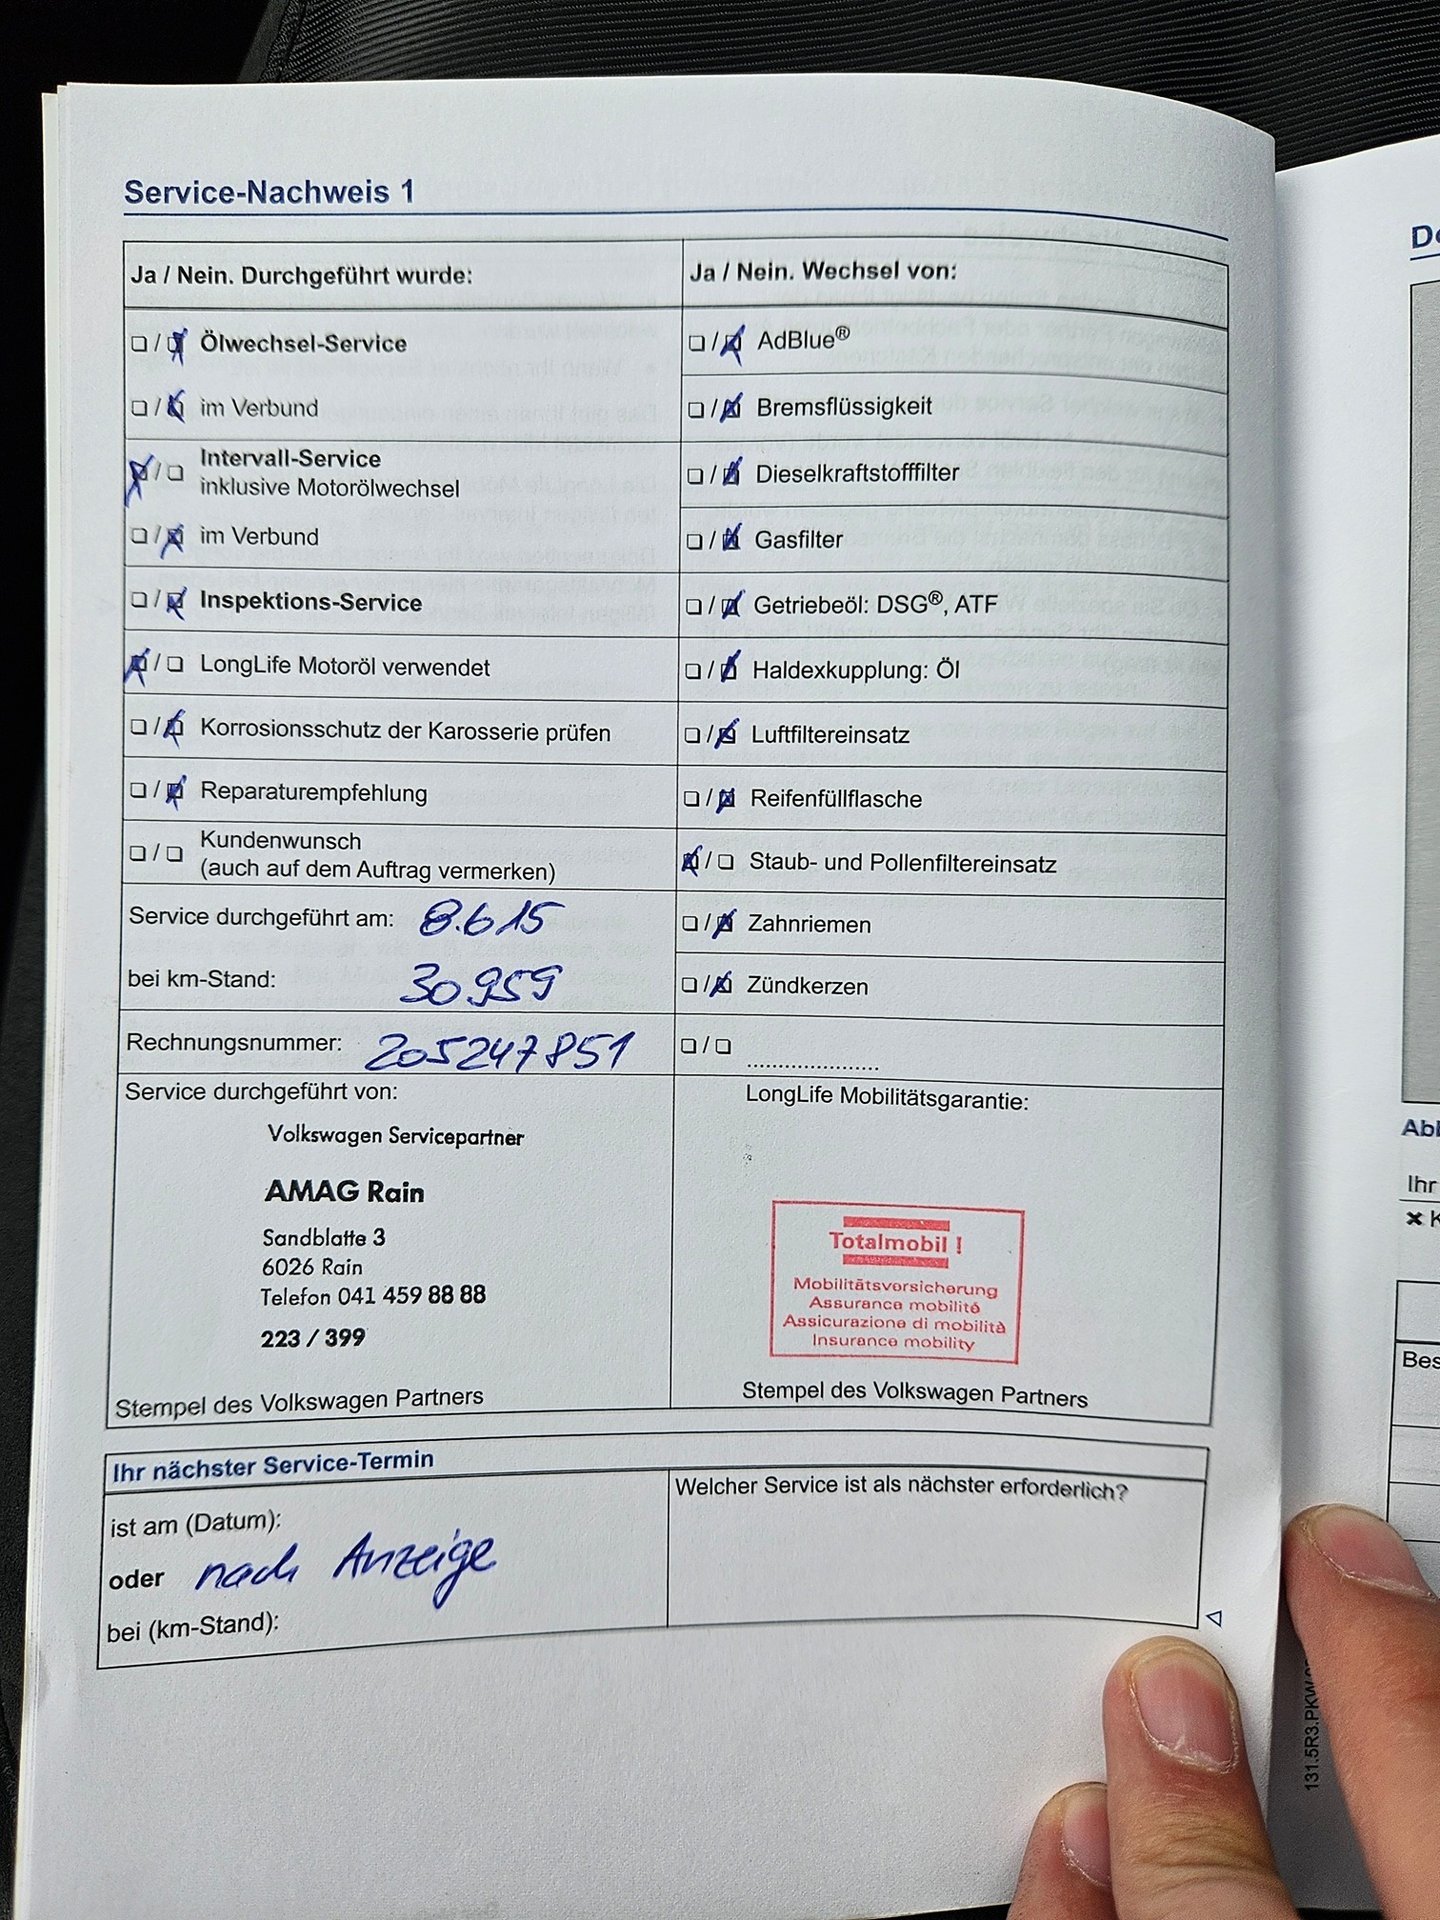 Service-Nachweis 1
Ja / Nein. Durchgeführt wurde:
☐ / ☒ Ölwechsel-Service
☐ / ☒ im Verbund
☒ / ☐ Intervall-Service
inklusive Motorölwechsel
☐ / ☒ im Verbund
☐ / ☒ Inspektions-Service
☒ / ☐ LongLife Motoröl verwendet
☐ / ☒ Korrosionsschutz der Karosserie prüfen
☐ / ☒ Reparaturempfehlung
☐ / ☐ Kundenwunsch
(auch auf dem Auftrag vermerken)
Service durchgeführt am: 8.6.15
bei km-Stand: 30959
Rechnungsnummer: 205247851
Service durchgeführt von:
Volkswagen Servicepartner
AMAG Rain
Sandblatte 3
6026 Rain
Telefon 041 459 88 88
223 / 399
Stempel des Volkswagen Partners
Ja / Nein. Wechsel von:
☐ / ☒ AdBlue®
☐ / ☒ Bremsflüssigkeit
☐ / ☒ Dieselkraftstofffilter
☐ / ☒ Gasfilter
☐ / ☒ Getriebeöl: DSG®, ATF
☐ / ☒ Haldexkupplung: Öl
☐ / ☒ Luftfiltereinsatz
☐ / ☒ Reifenfüllflasche
☒ / ☐ Staub- und Pollenfiltereinsatz
☐ / ☒ Zahnriemen
☐ / ☒ Zündkerzen
☐ / ☐ ....................
LongLife Mobilitätsgarantie:
Totalmobil !
Mobilitätsversicherung
Assurance mobilité
Assicurazione di mobilità
Insurance mobility
Stempel des Volkswagen Partners
Ihr nächster Service-Termin
ist am (Datum):
oder nach Anzeige
bei (km-Stand):
Welcher Service ist als nächster erforderlich?
Ihr
131.5R3.PKW